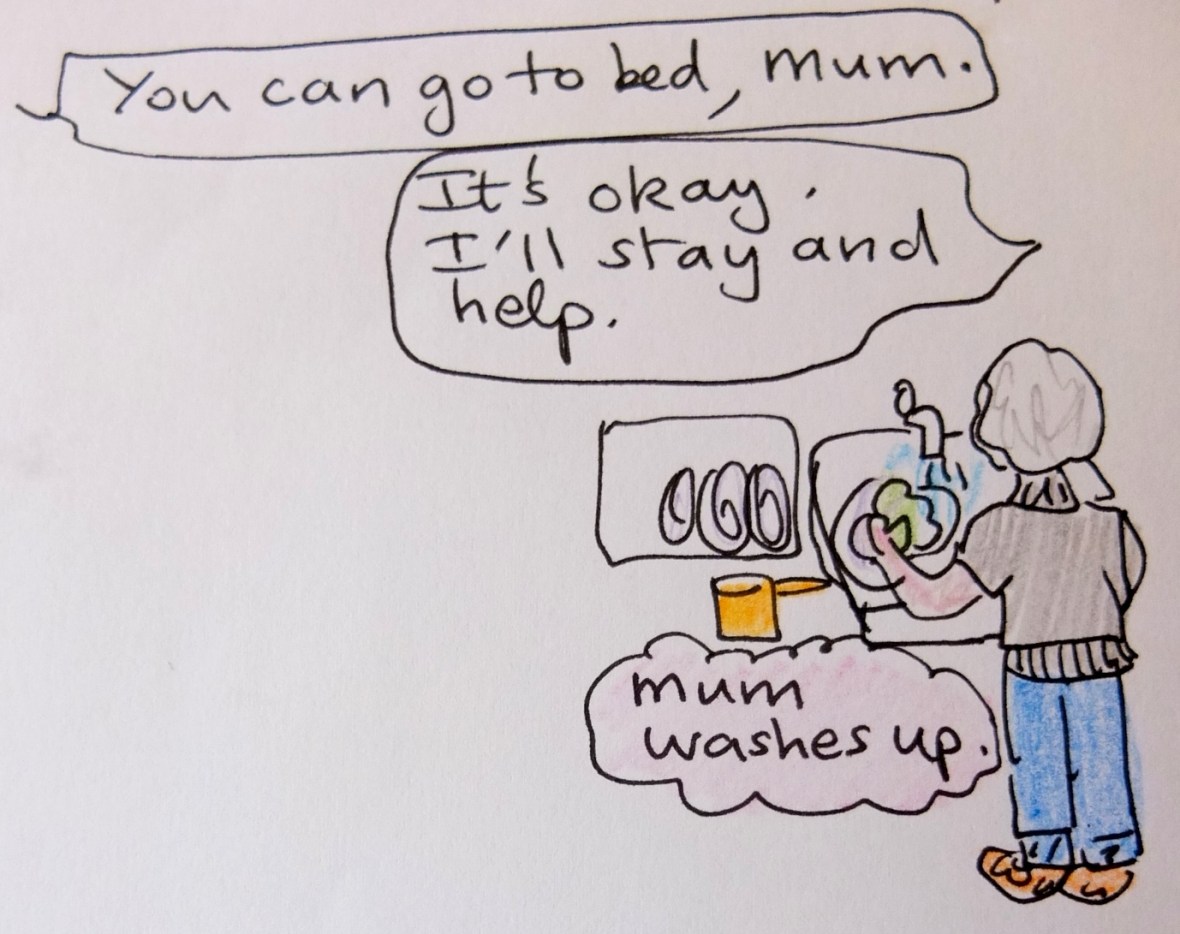 You can go to bed, mum.
It's okay.
I'll stay and
help.
mum
washes up.